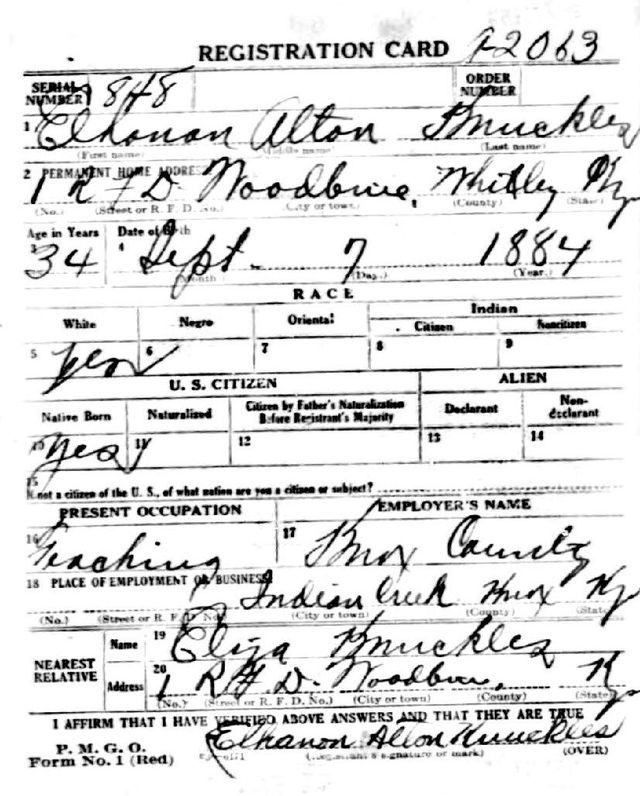 REGISTRATION CARD A2063
SERIAL NUMBER 1848 ORDER NUMBER
1 Elhanon Alton Knuckles
(First name) (Middle name) (Last name)
2 PERMANENT HOME ADDRESS
1 R F D Woodbine, Whitley Ky
(No.) (Street or R. F. D. No.) (City or town) (County) (State)
Age in Years Date of Birth
3 34 4 Sept. 7 1884
(Month) (Day.) (Year.)
RACE
White Negro Oriental Indian
Citizen Noncitizen
5 Yes 6 7 8 9
U. S. CITIZEN ALIEN
Native Born Naturalized Citizen by Father's Naturalization Before Registrant's Majority Declarant Non-declarant
10 Yes 11 12 13 14
15
If not a citizen of the U. S., of what nation are you a citizen or subject?
PRESENT OCCUPATION EMPLOYER'S NAME
16 Teaching 17 Knox County
18 PLACE OF EMPLOYMENT OR BUSINESS:
Indian Creek Knox Ky
(No.) (Street or R. F. D. No.) (City or town) (County) (State)
NEAREST RELATIVE Name 19 Eliza Knuckles
Address 20 1 R F D. Woodbine, Ky
(No.) (Street or R. F. D. No.) (City or town) (County) (State)
I AFFIRM THAT I HAVE VERIFIED ABOVE ANSWERS AND THAT THEY ARE TRUE
P. M. G. O.
Form No. 1 (Red) Elhanon Alton Knuckles
(Registrant's signature or mark) (OVER)